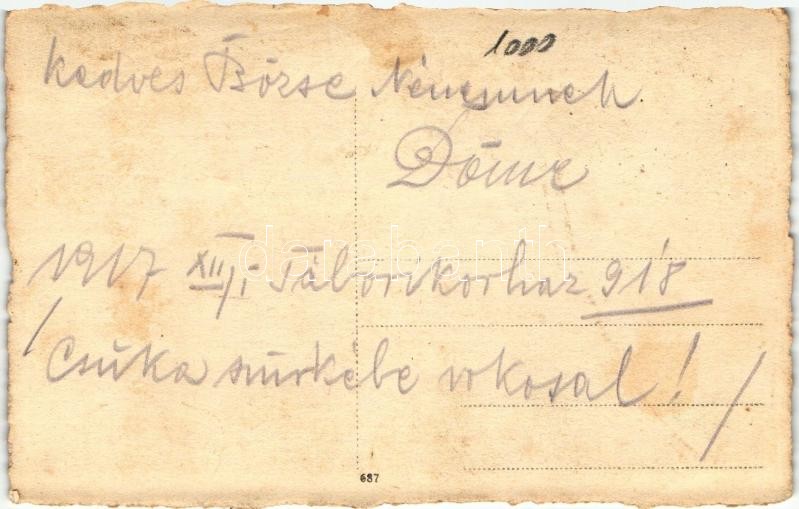 1000
Kedves Börse Nénémnek
Döme
1917 XII/1 Táborikorház 918
/ Csuka szürkébe vokosal! /
637
darabanth